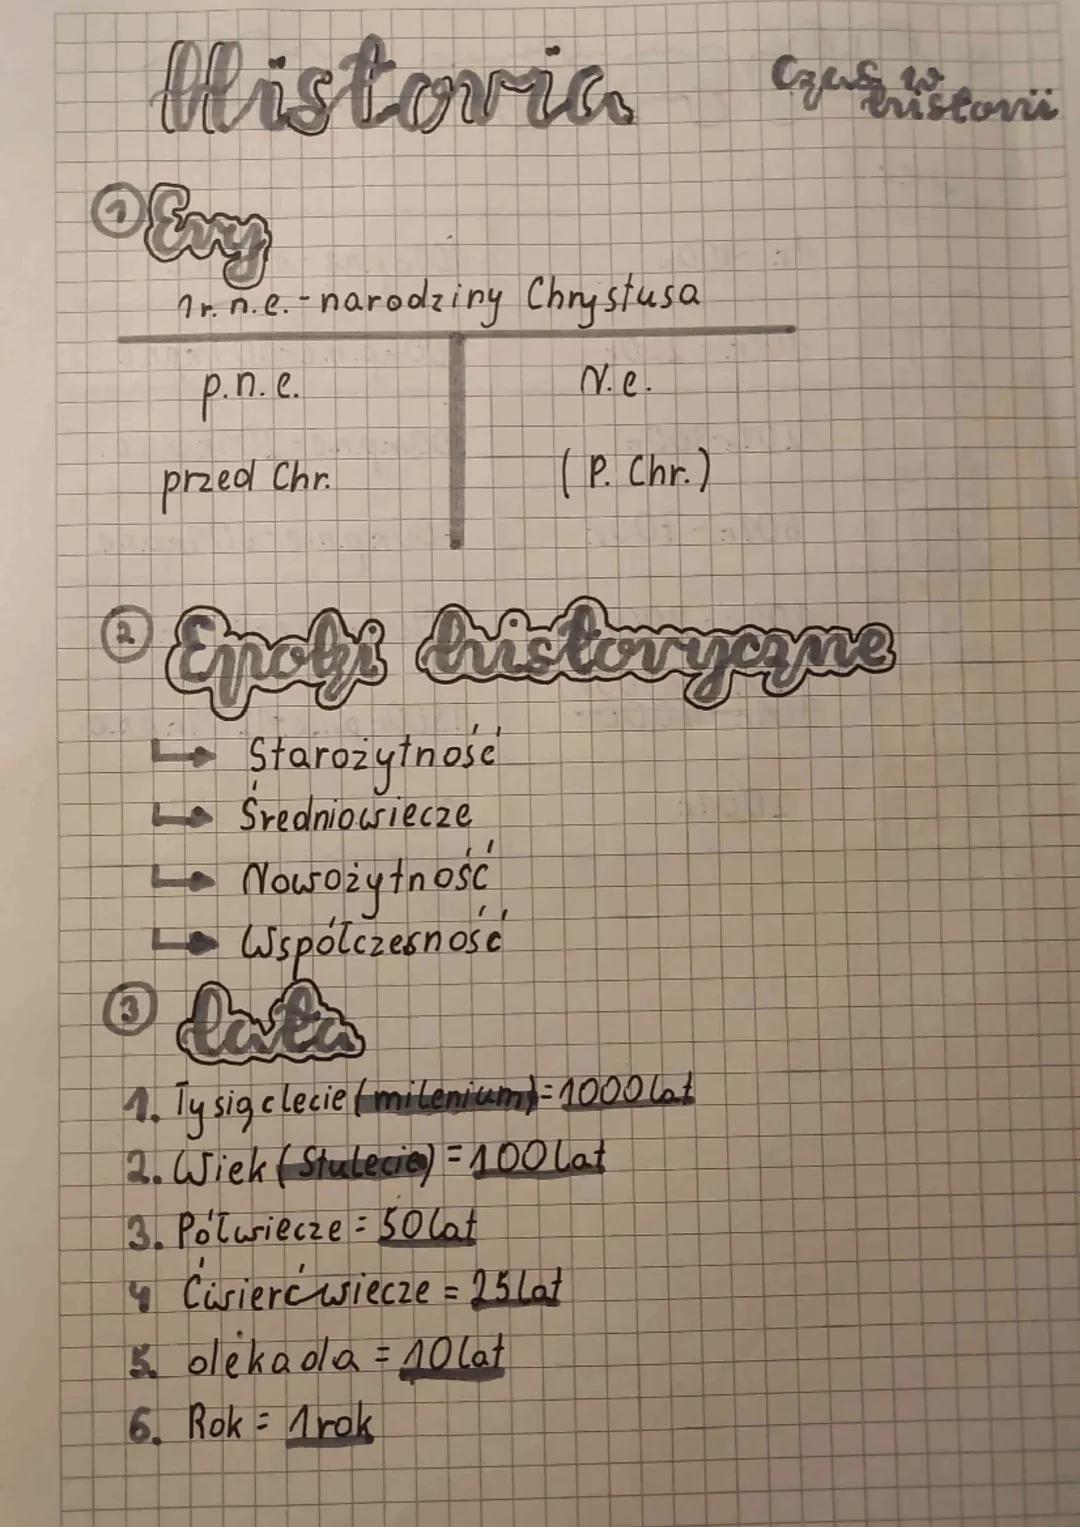 Historia
Czas w historii
1 Ery
1 r. n.e. - narodziny Chrystusa
p.n.e. N.e.
przed Chr. (P. Chr.)
2 Epoki historyczne
Starożytność
Średniowiecze
Nowożytność
Współczesność
3 lata
1. Tysiąclecie (milenium) = 1000 lat
2. Wiek (Stulecie) = 100 lat
3. Półwiecze = 50 lat
4 Ćwierćwiecze = 25 lat
5. dekada = 10 lat
6. Rok = 1 rok